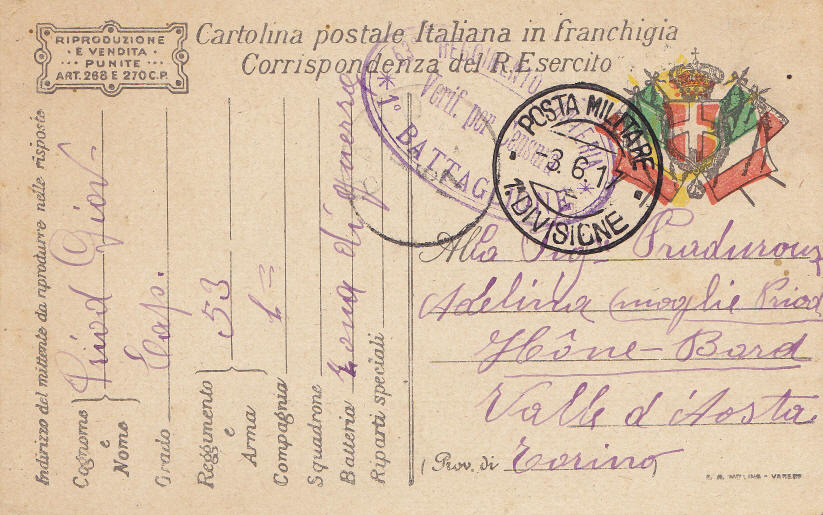 RIPRODUZIONE
E VENDITA
PUNITE
ART. 268 E 270 C.P.
Cartolina postale Italiana in franchigia
Corrispondenza del R. Esercito
53° REGGIMENTO FANTERIA
Verif. per censura
* 1° BATTAGLIONE *
POSTA MILITARE
-3.6.17
1ª DIVISIONE
Indirizzo del mittente da riprodurre nelle risposte
Cognome e Nome Priod Giov.
Grado Cap.
Reggimento e Arma 53
Compagnia 1ª
Squadrone
Batteria Zona di guerra
Riparti speciali
Alla Sig. Praduroux
Adelina (moglie Priod
Hône-Bard
Valle d'Aosta
(Prov. di Torino)